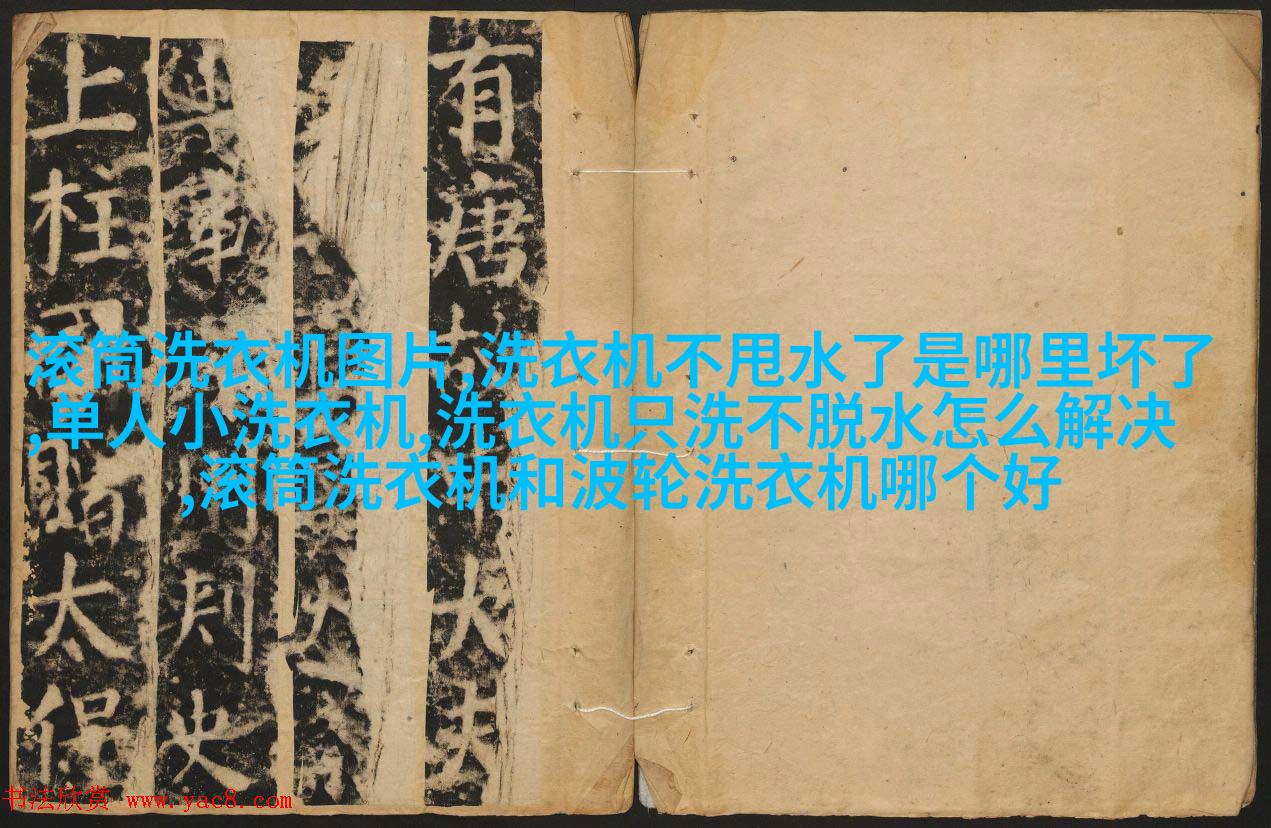 有唐故大夫
軍刺史
上柱太保
滚筒洗衣机图片,洗衣机不甩水了是哪里坏了
,单人小洗衣机,洗衣机只洗不脱水怎么解决
,滚筒洗衣机和波轮洗衣机哪个好
书法欣赏 www.yac8.com